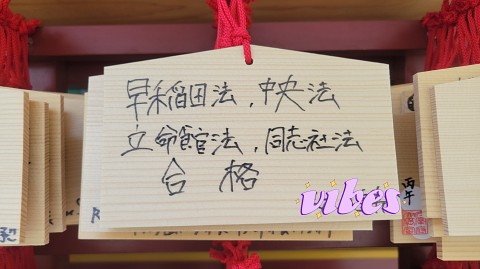 早稲田法, 中央法
立命館法, 同志社法
合格
vibes
丙午